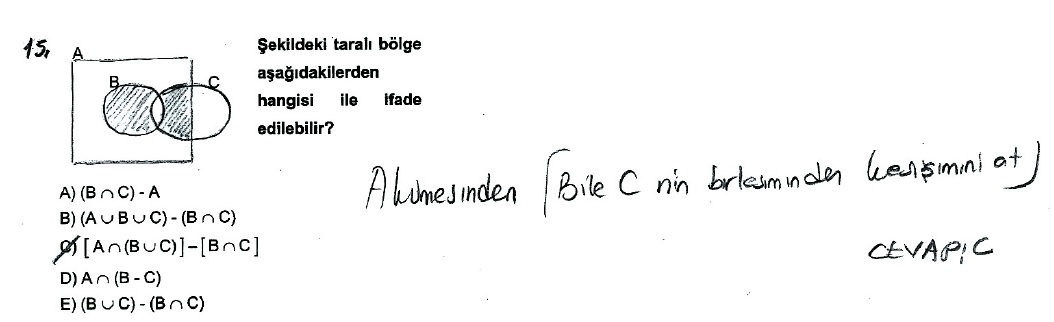 15.
A
B
C
Şekildeki taralı bölge
aşağıdakilerden
hangisi ile ifade
edilebilir?
A) (B∩C) - A
B) (A∪B∪C) - (B∩C)
C) [A∩(B∪C)] – [B∩C]
D) A∩(B - C)
E) (B∪C) - (B∩C)
A kümesinden (B ile C nin birlesiminden kesişimini at)
CEVAP: C